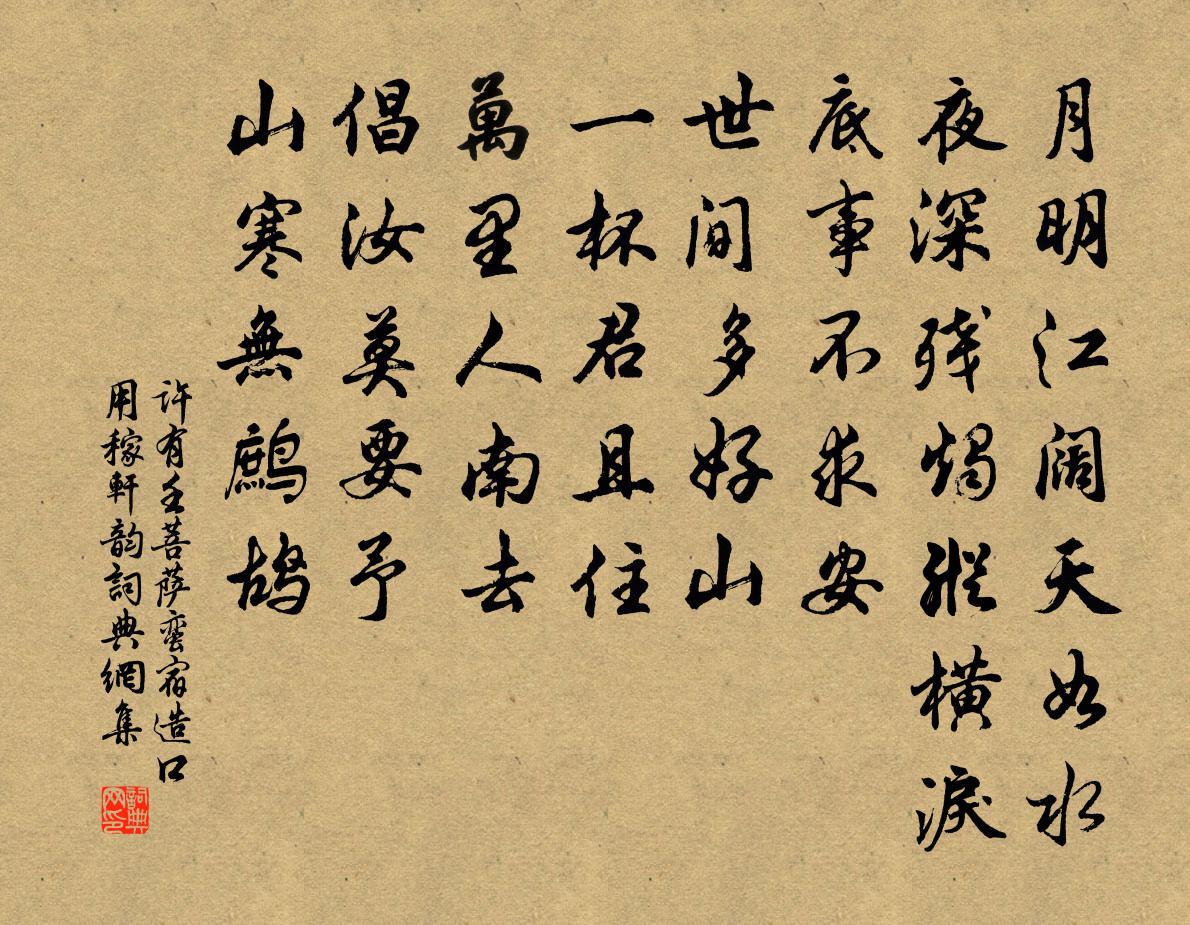 月明江阔天如水
夜深残烛縱橫淚
底事不求安
世间多好山
一杯君且住
萬里人南去
倡汝莫要予
山寒無鹧鸪
許有壬菩薩蛮宿造口
用稼軒韵詞典網集
詞典网印